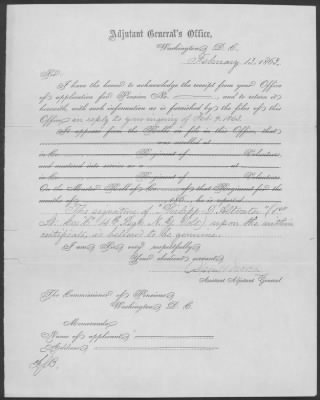 Adjutant General's Office,
Washington, D. C.
February 13, 1863.
Sir:
I have the honor to acknowledge the receipt from your Office
of application for Pension No. , and to return it
herewith, with such information as is furnished by the files of this
Office, in reply to your inquiry of Feb. 9. 1863.
It appears from the Rolls on file in this Office, that
was enrolled at
in Co. Regiment of Volunteers,
and mustered into service as a at
in Co. Regiment of Volunteers,
On the Muster Roll of Co. of that Regiment, for the
months of , he is reported
The signature of
certificate, is believed to be genuine.
I am Sir, very respectfully,
Your obedient servant,
Assistant Adjutant General
The Commissioner of Pensions,
Washington, D. C.
Memoranda.
Name of applicant
Address